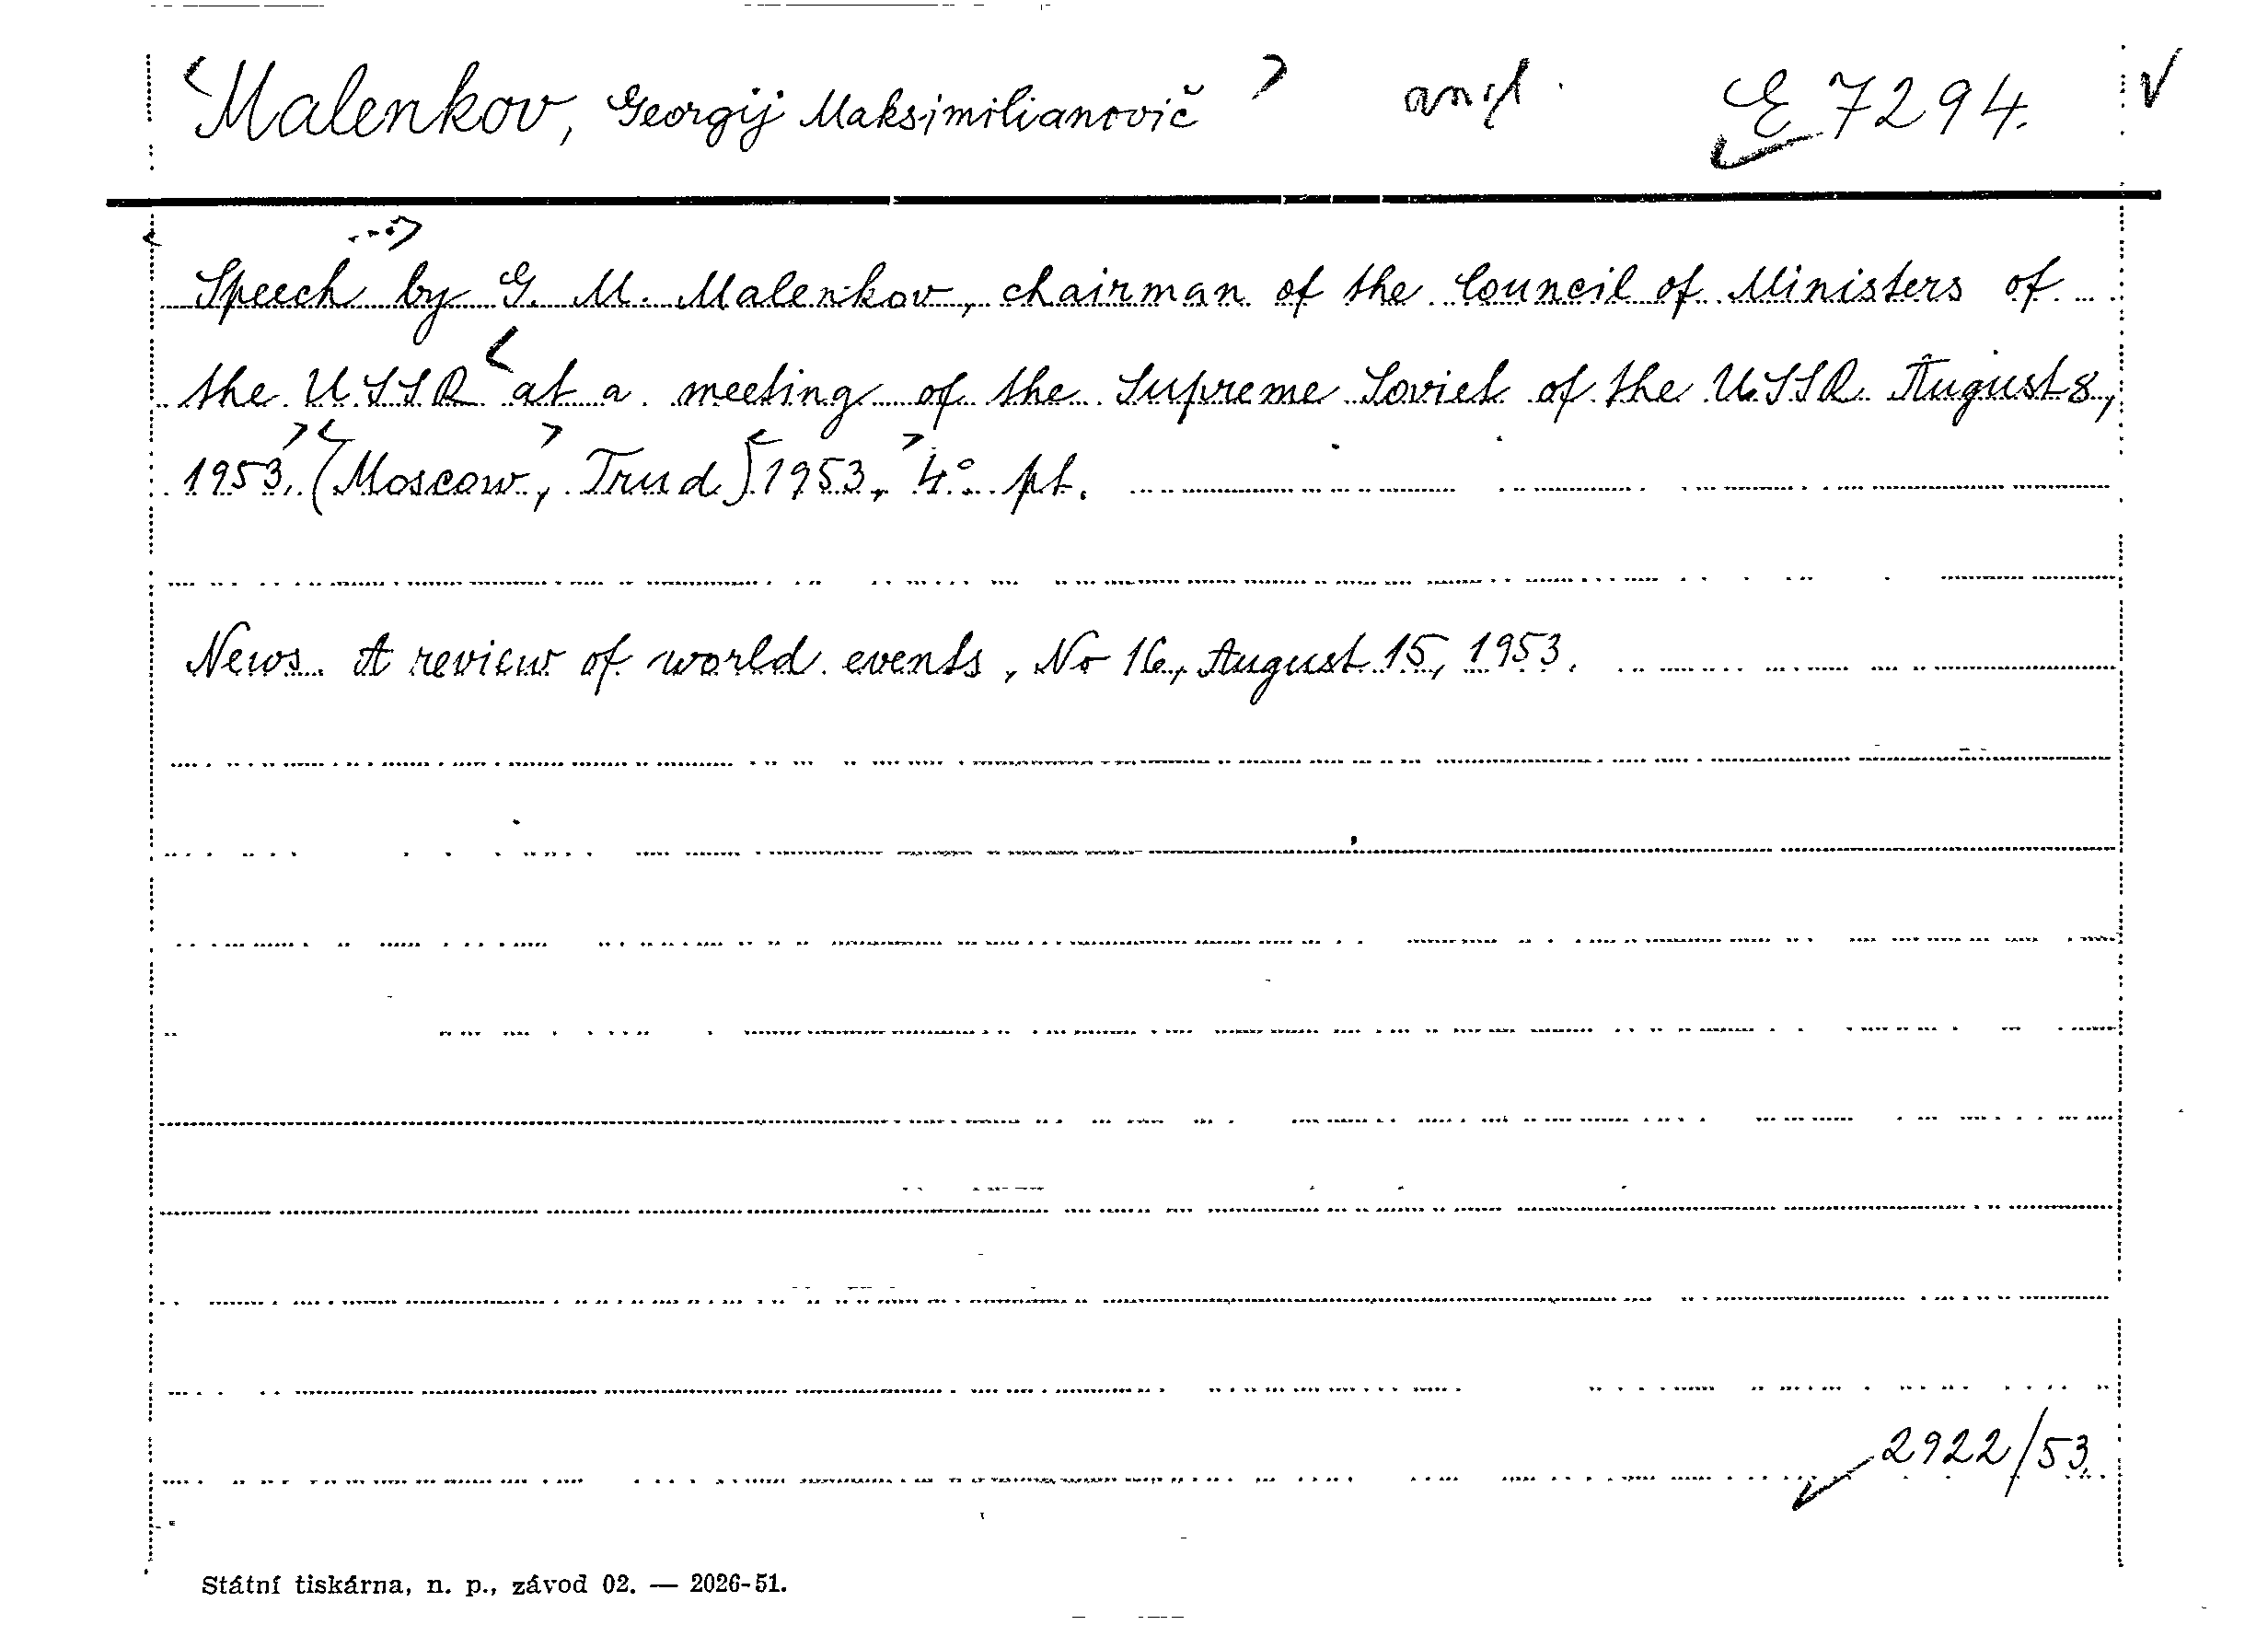 Malenkov, Georgij Maksimilianovič angl. E 7294.
Speech by G. M. Malenkov, chairman of the Council of Ministers of
the USSR at a meeting of the Supreme Soviet of the USSR August 8,
1953. (Moscow, Trud) 1953, 4° pt.
News. A review of world events, No 16, August 15, 1953.
2922/53
Státní tiskárna, n. p., závod 02. — 2026-51.